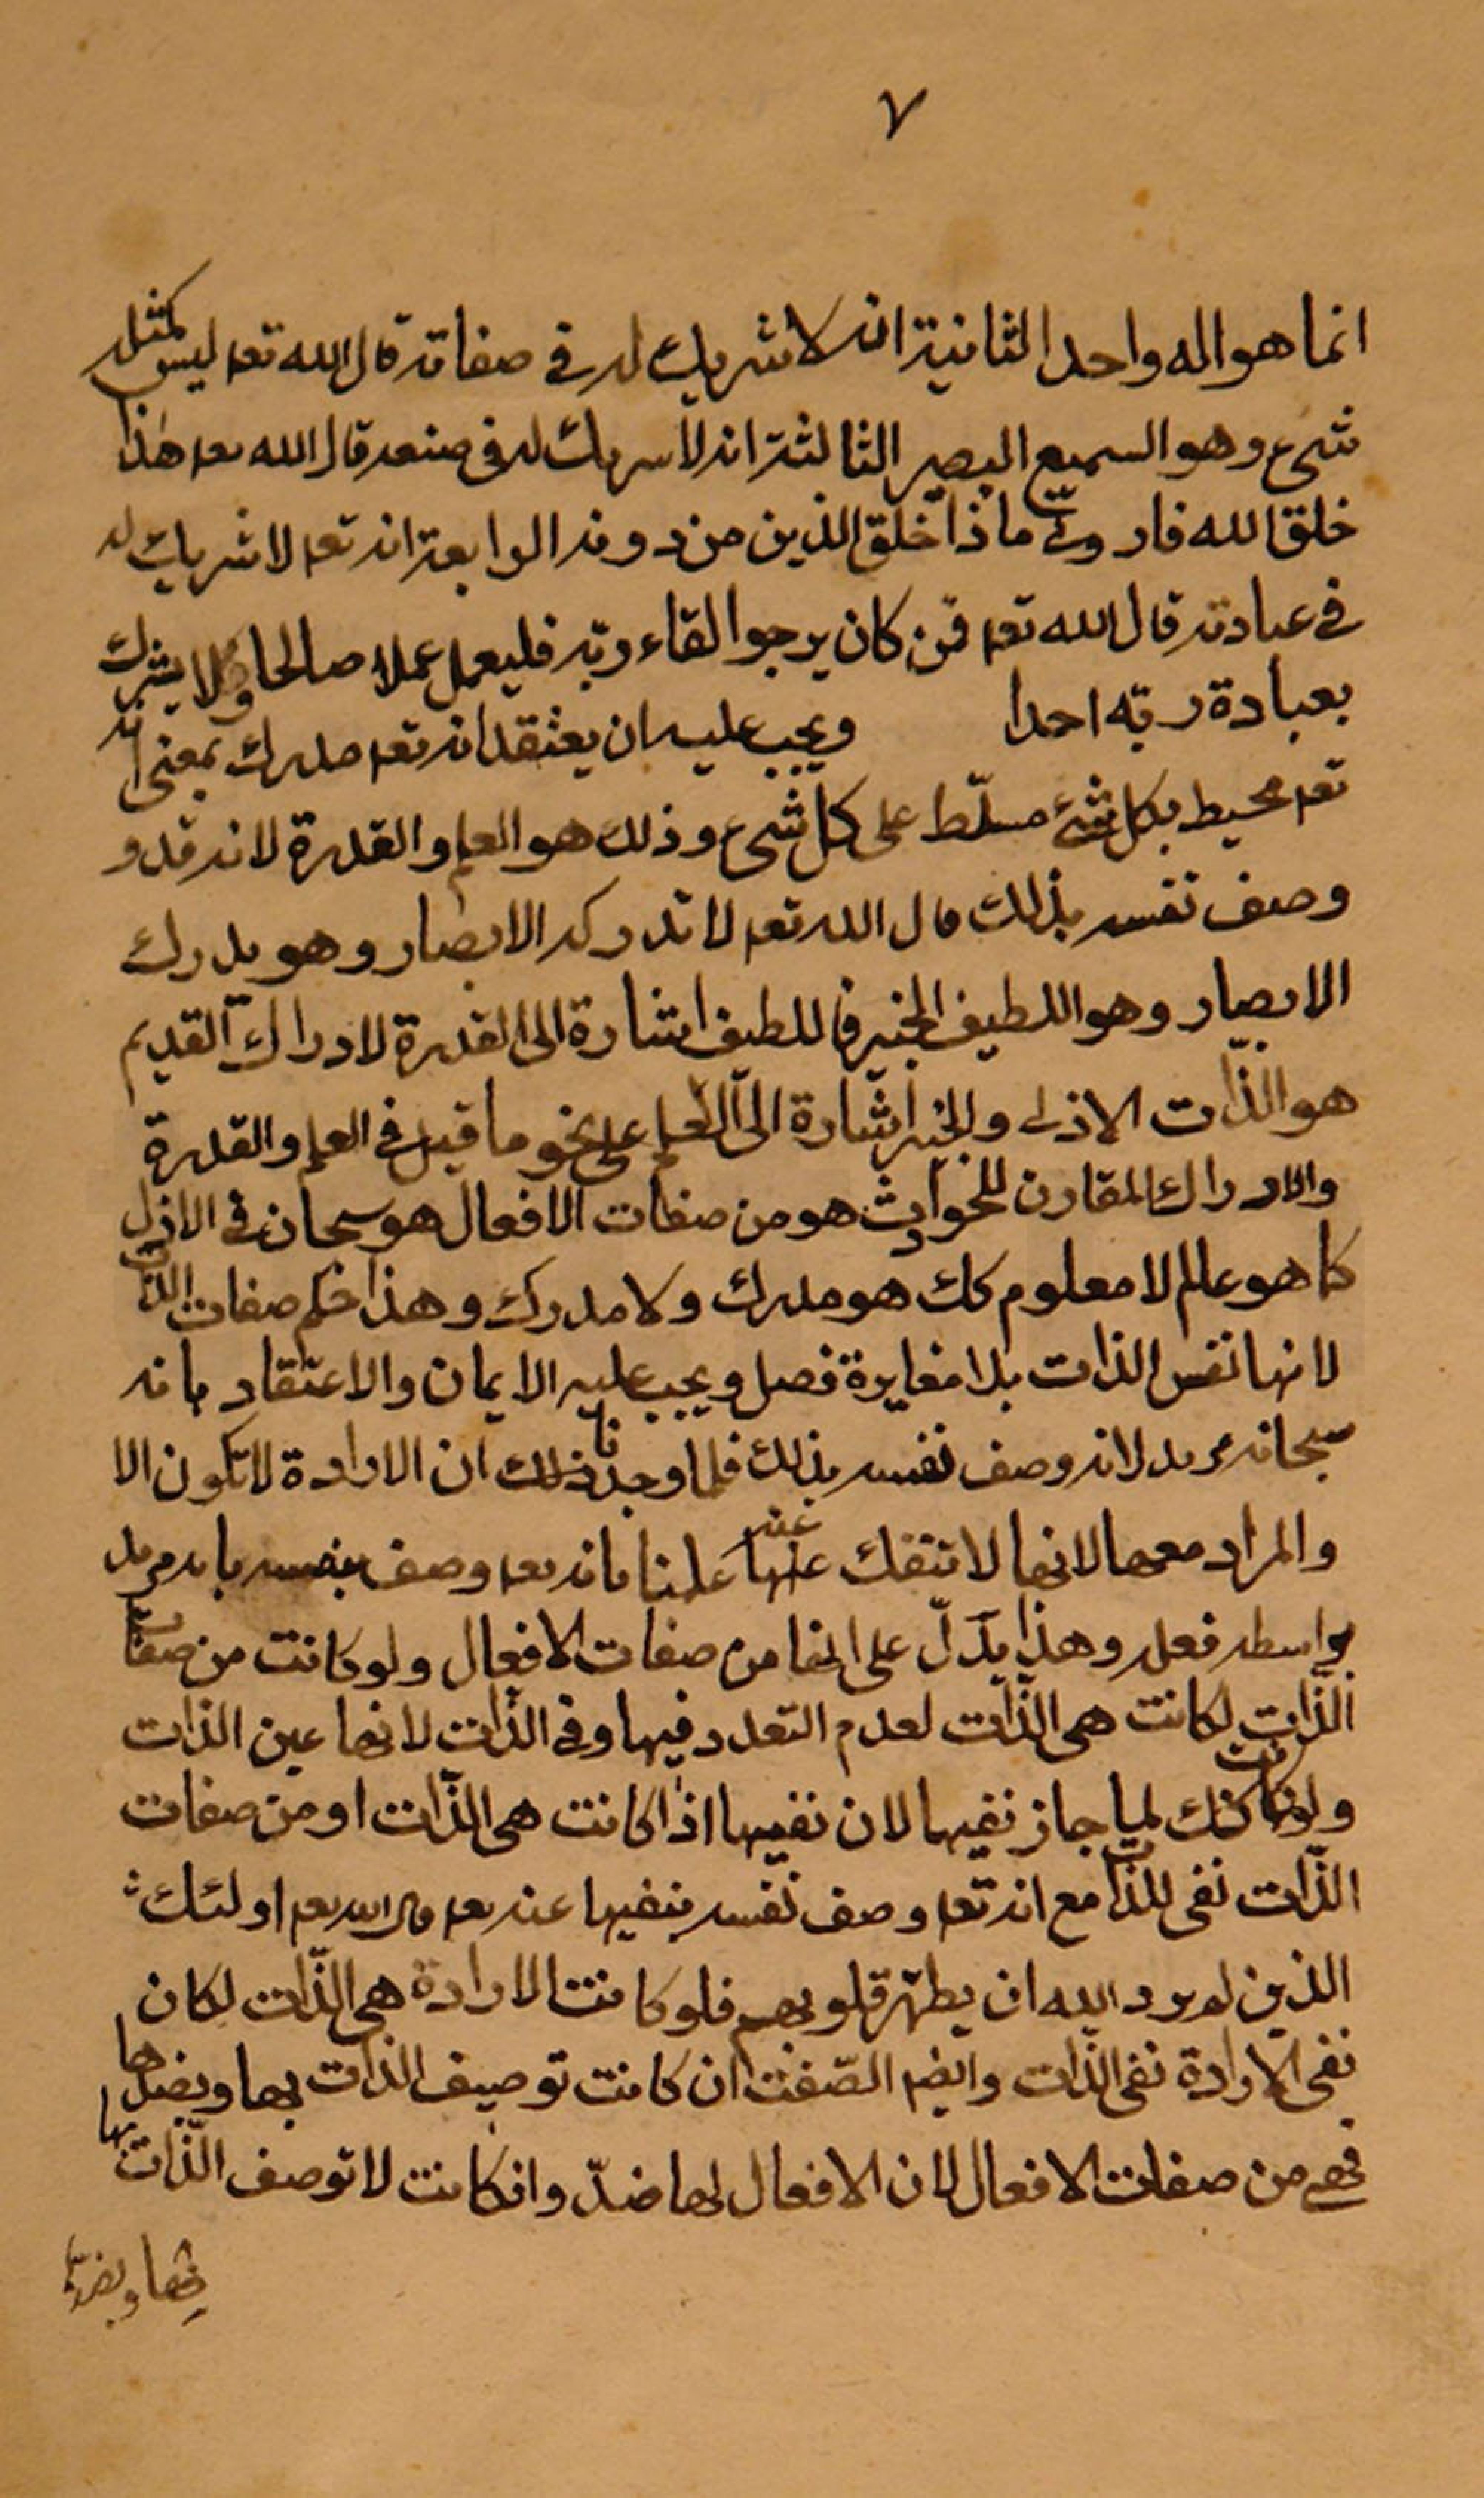 ٧
انما هو اله واحد الثانية انه لا شريك له في صفاته قال الله تعه ليس كمثله
شیء وهو السميع البصير الثالثة انه لا سريك له فى صنعه قال الله تعه هذا
خلق الله فارونی ماذا خلق الذين من دونه الرابعة انه تعه لا شريك له
فى عبادته قال الله تعه فمن كان يرجوا لقاء ربّه فليعمل عملا صالحا ولا يشرك
بعبادة ربّه احدا ويجب عليه ان يعتقد انه تعه مدرك بمعنى انه
تعه محيط بكل شئ مسلّط على كل شىء وذلك هو العلم والقدرة لانه قد و
وصف نفسه بذلك قال الله تعه لا تدركه الابصار وهو يدرك
الابصار وهو اللطيف الخبير فاللطيف اشارة الى القدرة لادراك القديم
هو الذّات الازلى والخبير اشارة الى العلم على نحو ما قيل فى العلم والقدرة
والادراك المقارن للحوادث هو من صفات الافعال هو سبحانه فى الازل
كما هو عالم لا معلوم كك هو مدرك ولا مدرك وهذا حكم صفات الذات
لانها نفس الذات بلا مغايرة فصل ويجب عليه الايمان والاعتقاد بانه
سبحانه مريد لانه وصف نفسه بذلك فلما وجدنا ذلك ان الارادة لا تكون الا
والمراد معها لانها لا تنفك عنها عنه علمنا بانه تعه وصف نفسه بانه مريد
بواسطه فعله وهذا يدلّ على انها من صفات الافعال ولو كانت من صفات
الذّات لكانت هى الذّات لعدم التعدد فيها وفى الذّات لانها عين الذات
ولو كانت كك لما جاز نفيها لان نفيها اذا كانت هى الذّات او من صفات
الذّات نفى للذات مع انه تعه وصف نفسه بنفيها عنه تعه قال الله تعه اولئك
الذين لم يرد الله ان يطهّر قلوبهم فلو كانت الارادة هى الذّات لكان
نفى الارادة نفى الذّات وايضه الصّفة ان كانت توصيف الذات بها وبضدها
فهى من صفات الافعال لان الافعال لها ضدّ وان كانت لا توصف الذّات بها
بها وبضدّها